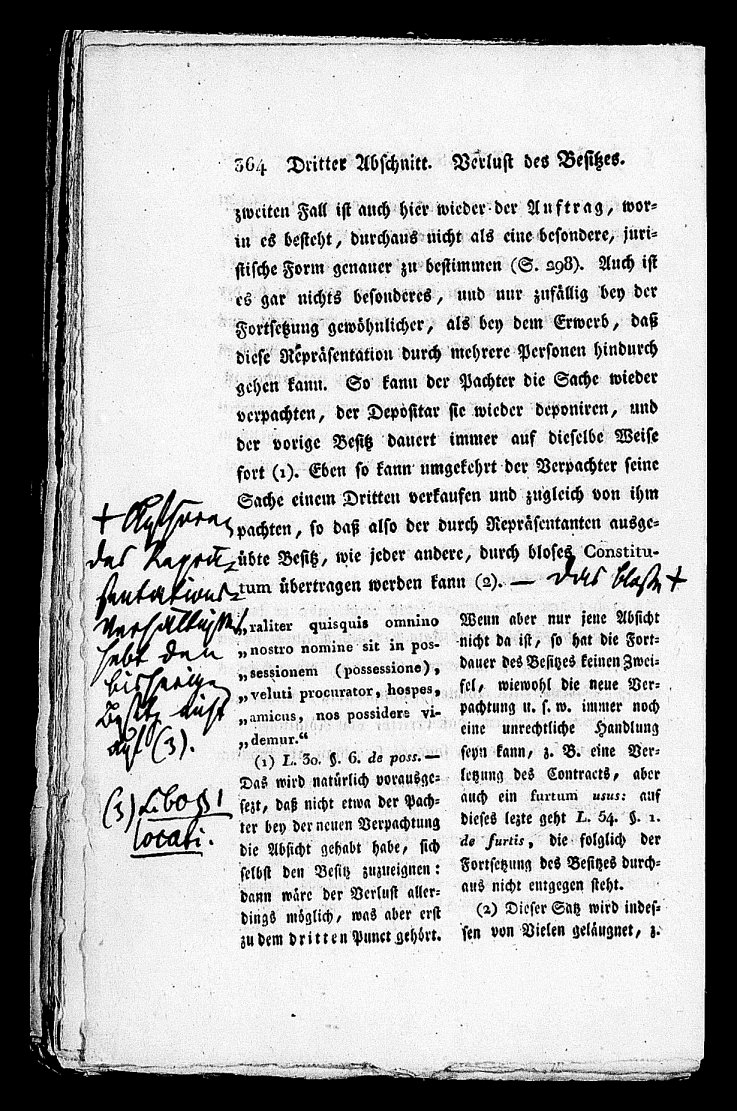 364 Dritter Abschnitt. Verlust des Besitzes.
zweiten Fall ist auch hier wieder der Auftrag, wor-
in es besteht, durchaus nicht als eine besondere, juri-
stische Form genauer zu bestimmen (S. 298). Auch ist
es gar nichts besonderes, und nur zufällig bey der
Fortsetzung gewöhnlicher, als bey dem Erwerb, daß
diese Repräsentation durch mehrere Personen hindurch
gehen kann. So kann der Pachter die Sache wieder
verpachten, der Depositar sie wieder deponiren, und
der vorige Besitz dauert immer auf dieselbe Weise
fort (1). Eben so kann umgekehrt der Verpachter seine
Sache einem Dritten verkaufen und zugleich von ihm
pachten, so daß also der durch Repräsentanten ausge-
übte Besitz, wie jeder andere, durch bloses Constitu-
tum übertragen werden kann (2). — Das bloße +
+ Aufhören
des Reprä-
sentations-
verhältnißes
hebt den
bisherigen
Besitz nicht
auf (3).
(3) L. 60 § 1
locati.
„raliter quisquis omnino
„nostro nomine sit in pos-
„sessionem (possessione),
„veluti procurator, hospes,
„amicus, nos possidere vi-
„demur.“
(1) L. 30. §. 6. de poss. —
Das wird natürlich vorausge-
sezt, daß nicht etwa der Pach-
ter bey der neuen Verpachtung
die Absicht gehabt habe, sich
selbst den Besitz zuzueignen:
dann wäre der Verlust aller-
dings möglich, was aber erst
zu dem dritten Punct gehört.
Wenn aber nur jene Absicht
nicht da ist, so hat die Fort-
dauer des Besitzes keinen Zwei-
fel, wiewohl die neue Ver-
pachtung u. s. w. immer noch
eine unrechtliche Handlung
seyn kann, z. B. eine Ver-
letzung des Contracts, aber
auch ein furtum usus: auf
dieses lezte geht L. 54. §. 1.
de furtis, die folglich der
Fortsetzung des Besitzes durch-
aus nicht entgegen steht.
(2) Dieser Satz wird indes-
sen von Vielen geläugnet, z.